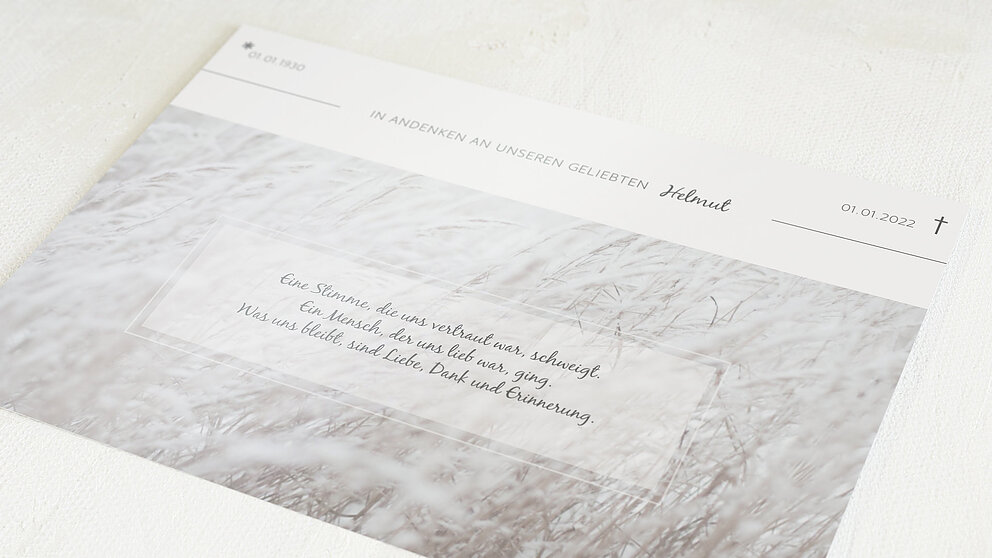 * 01.01.1930
IN ANDENKEN AN UNSEREN GELIEBTEN Helmut
01.01.2022 †
Eine Stimme, die uns vertraut war, schweigt.
Ein Mensch, der uns lieb war, ging.
Was uns bleibt, sind Liebe, Dank und Erinnerung.